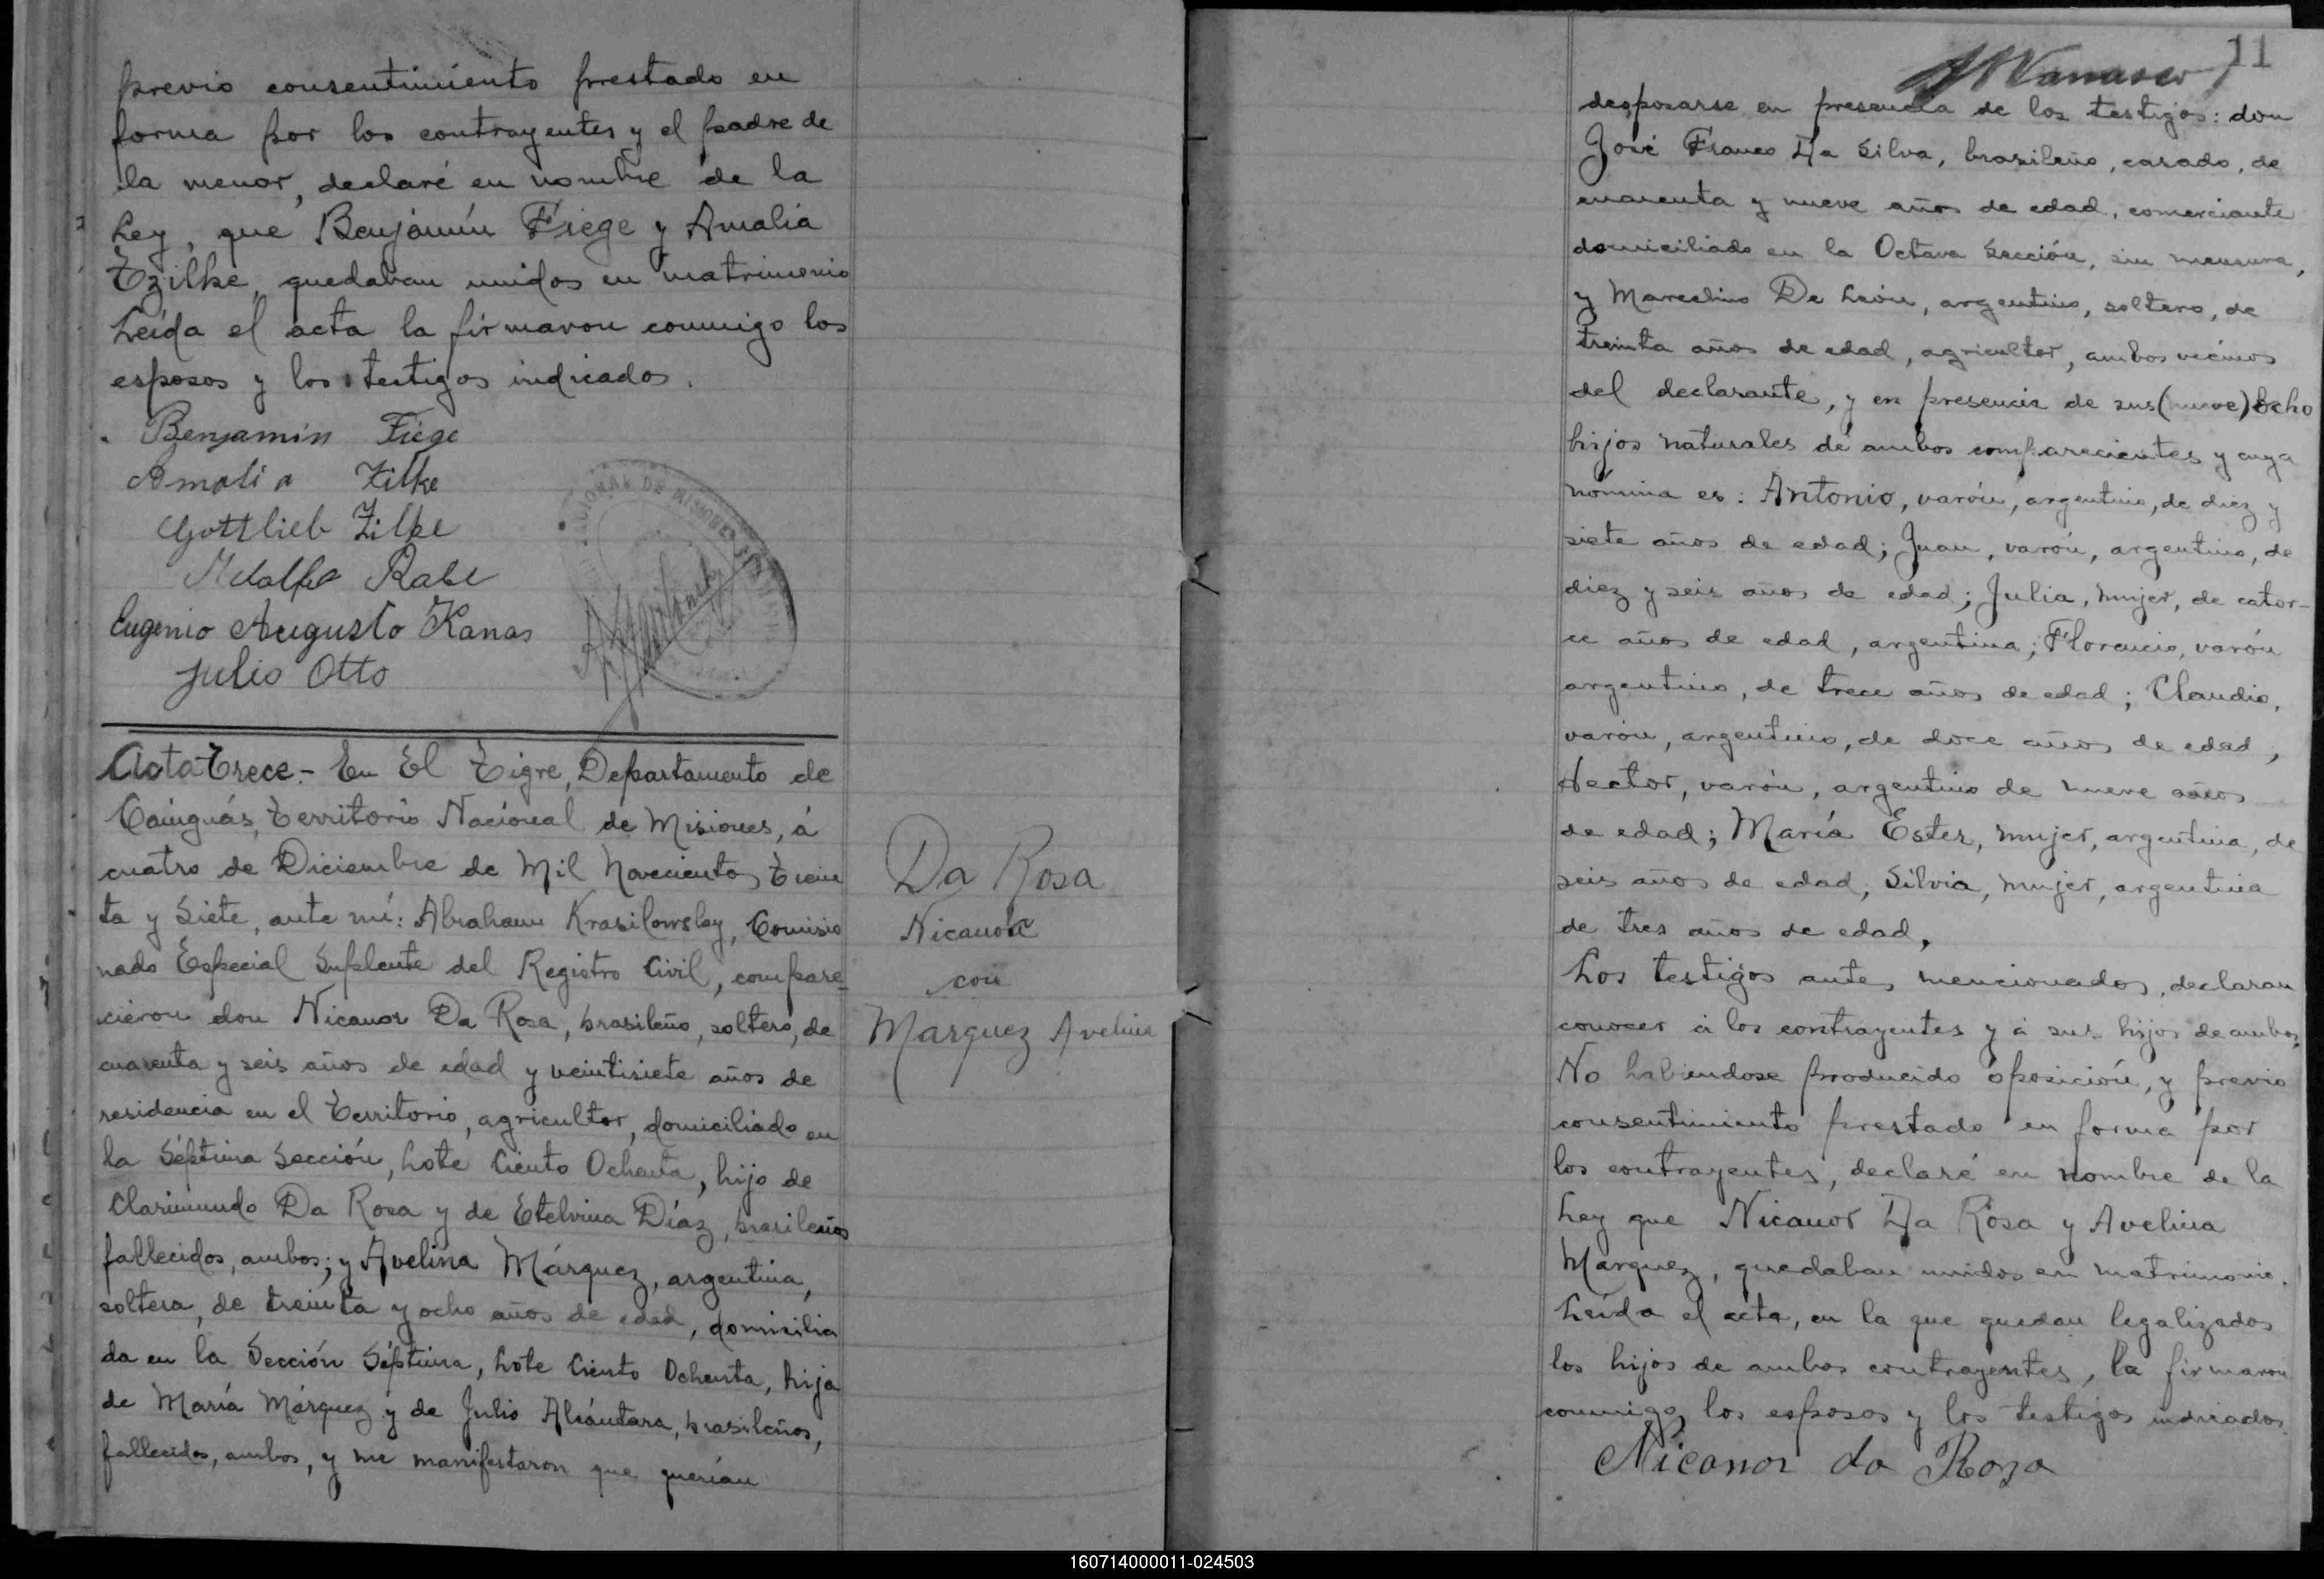 previo consentimiento prestado en
forma por los contrayentes y el padre de
la menor, declaré en nombre de la
Ley, que Benjamín Fiege y Amalia
Tzilke, quedaban unidos en matrimonio
Leída el acta la firmaron conmigo los
esposos y los testigos indicados.
Benjamin Fiege
Amalia Zilke
Gottlieb Zilke
Rabe
Eugenio Augusto Kanas
Julio Otto
NACIONAL DE MISIONES
Acta Trece.- En El Tigre, Departamento de
Cainguás, Territorio Nacional de Misiones, á
cuatro de Diciembre de Mil Novecientos Trein
ta y Siete, ante mí: Abraham Krasilowsky, Comisio
nado Especial Suplente del Registro Civil, compare-
cieron don Nicanor Da Rosa, brasileño, soltero, de
cuarenta y seis años de edad y veintisiete años de
residencia en el Territorio, agricultor, domiciliado en
la Séptima Sección, Lote Ciento Ochenta, hijo de
Clarimundo Da Rosa y de Etelvina Díaz, brasileños
fallecidos, ambos; y Avelina Márquez, argentina,
soltera, de treinta y ocho años de edad, domicilia
da en la Sección Séptima, Lote Ciento Ochenta, hija
de María Márquez y de Julio Alcántara, brasileños,
fallecidos, ambos, y me manifestaron que querían
Da Rosa
Nicanor
con
Marquez Avelina
11
desposarse en presencia de los testigos: don
José Franco Da Silva, brasileño, casado, de
cuarenta y nueve años de edad, comerciante
domiciliado en la Octava Sección, sin mensura,
y Marcelino De León, argentino, soltero, de
treinta años de edad, agricultor, ambos vecinos
del declarante, y en presencia de sus (nueve) ocho
hijos naturales de ambos comparecientes y cuya
nómina es: Antonio, varón, argentino, de diez y
siete años de edad; Juan, varón, argentino, de
diez y seis años de edad; Julia, mujer, de cator-
ce años de edad, argentina; Florencio, varón
argentino, de trece años de edad; Claudio,
varón, argentino, de doce años de edad,
Hector, varón, argentino de nueve años
de edad; María Ester, mujer, argentina, de
seis años de edad; Silvia, mujer, argentina
de tres años de edad.
Los testigos antes mencionados, declaran
conocer á los contrayentes y á sus hijos de ambos.
No habiendose producido oposición, y previo
consentimiento prestado en forma por
los contrayentes, declaré en nombre de la
Ley que Nicanor Da Rosa y Avelina
Marquez, quedaban unidos en matrimonio.
Leída el acta, en la que quedan legalizados
los hijos de ambos contrayentes, la firmaron
conmigo, los esposos y los testigos indicados.
Nicanor da Roza
160714000011-024503